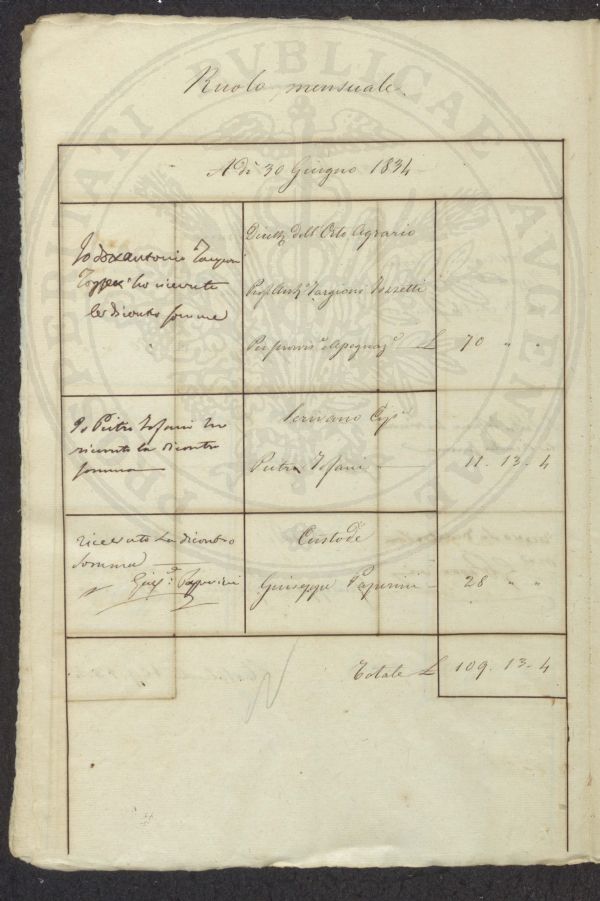 Ruolo mensuale.
A dì 30 Giugno 1834
Io dott antonio Targioni
ho ricevuto
la dicontro somma
Dirett.e dell'Orto Agrario
Prof. Ant.o Targioni Tozzetti
Per provvis.e £ 70 " "
Io Pietro Tofani ho
ricevuto la dicontro
somma
Scrivano
Pietro Tofani
11. 13. 4
ricevuto la dicontro
somma
Gius.e Paperini
Custode
Giuseppe Paperini
28 " "
Totale £ 109. 13. 4
PVBLICAE